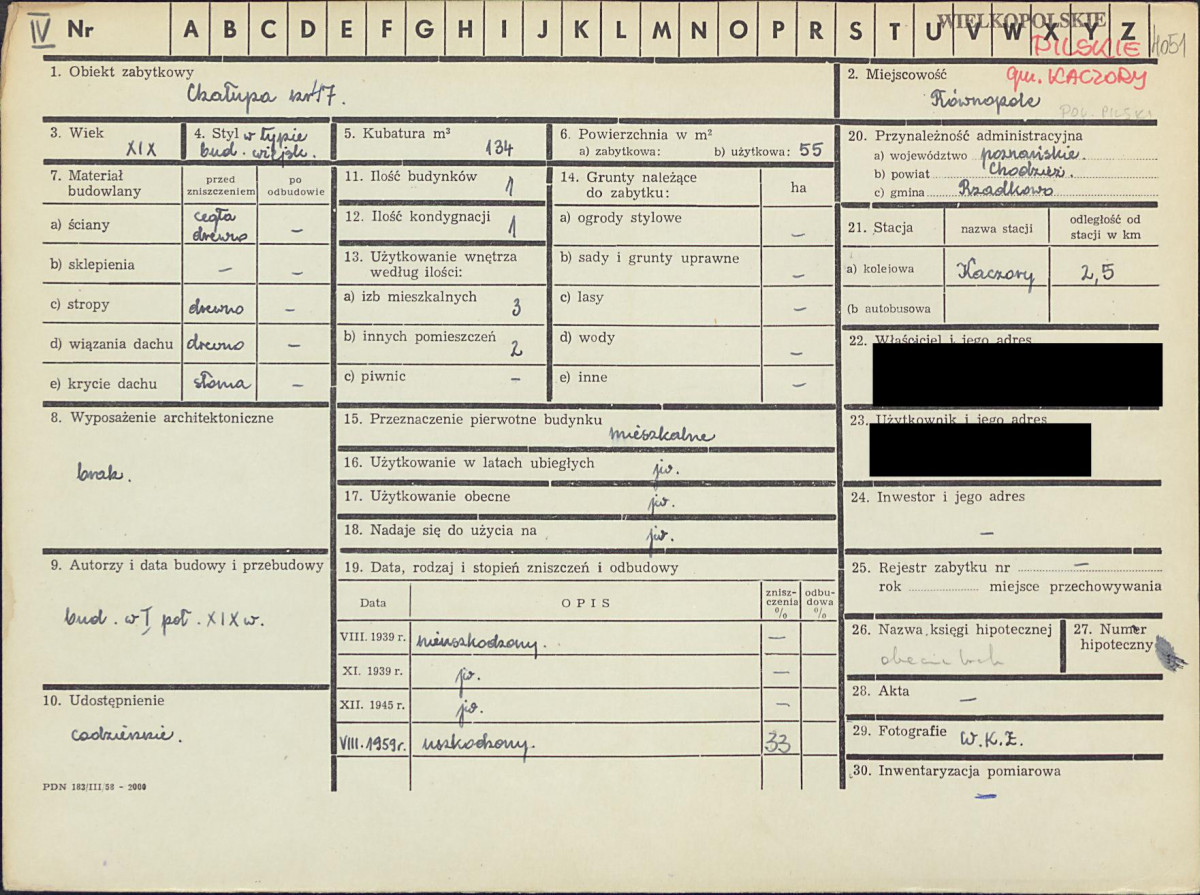 IV Nr A B C D E F G H I J K L M N O P R S T U V W X Y Z
WIELKOPOLSKIE
PILSKIE
gm. KACZORY
1. Obiekt zabytkowy
Chałupa nr 17.
2. Miejscowość
Równopole
POW. PILSKI
3. Wiek
XIX
4. Styl w typie
bud. wiejsk.
5. Kubatura m³
134
6. Powierzchnia w m²
a) zabytkowa: b) użytkowa: 55
20. Przynależność administracyjna
a) województwo poznańskie.
b) powiat Chodzież.
c) gmina Rzadkowo
7. Materiał budowlany
przed zniszczeniem
po odbudowie
a) ściany cegła drewno –
b) sklepienia – –
c) stropy drewno –
d) wiązania dachu drewno –
e) krycie dachu słoma –
11. Ilość budynków 1
12. Ilość kondygnacji 1
13. Użytkowanie wnętrza
według ilości:
a) izb mieszkalnych 3
b) innych pomieszczeń 2
c) piwnic –
14. Grunty należące
do zabytku: ha
a) ogrody stylowe –
b) sady i grunty uprawne –
c) lasy –
d) wody –
e) inne –
21. Stacja nazwa stacji odległość od stacji w km
a) kolejowa Kaczory 2,5
(b autobusowa
22. Właściciel i jego adres
23. Użytkownik i jego adres
8. Wyposażenie architektoniczne
brak.
15. Przeznaczenie pierwotne budynku
mieszkalne
16. Użytkowanie w latach ubiegłych jw.
17. Użytkowanie obecne jw.
18. Nadaje się do użycia na jw.
24. Inwestor i jego adres
–
9. Autorzy i data budowy i przebudowy
bud. w I poł. XIX w.
19. Data, rodzaj i stopień zniszczeń i odbudowy
Data OPIS znisz-czenia % odbu-dowa %
VIII. 1939 r. nieuszkodzony. –
XI. 1939 r. jw. –
XII. 1945 r. jw. –
VIII. 1959 r. uszkodzony. 33
25. Rejestr zabytku nr –
rok miejsce przechowywania
26. Nazwa księgi hipotecznej
obecnie brak
27. Numer
hipoteczny
10. Udostępnienie
codzienne.
28. Akta –
29. Fotografie W.K.Z.
30. Inwentaryzacja pomiarowa
–
PDN 183/III/58 - 2000